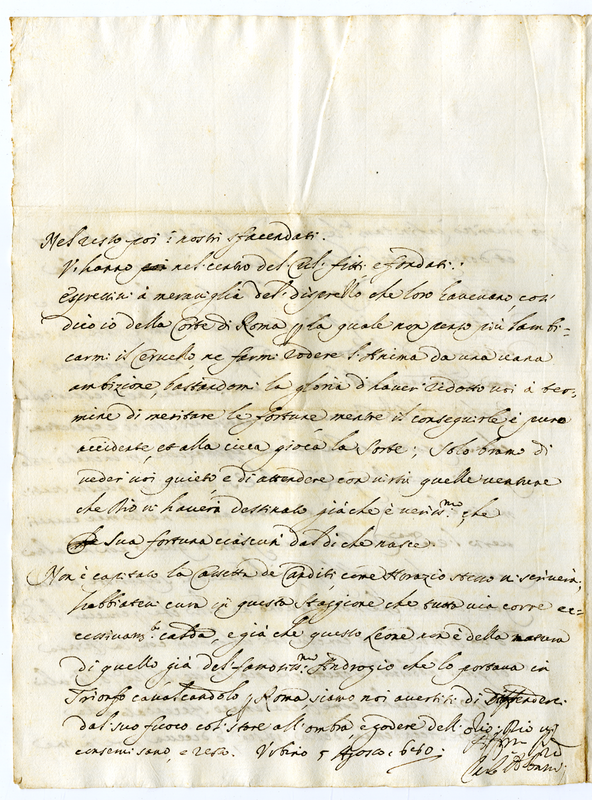 Nel resto poi i nostri sfacendati.
Vi hanno nel centro del Cul. fitti e fondati:
Espressivi à meraviglia del disprezzo che loro havevano, così
dico io della Corte di Roma p la quale non penso più lambi-
carmi il Cervello, ne farmi rodere l'Anima da una vana
ambizione, bastandomi la gloria d'haver ridotto voi à ter-
mine di meritare le fortune mentre il conseguirle è puro
accidente, et alla cieca gioca la Sorte; Solo bramo di
veder voi quieto, e di attendere con virtù quelle venture
che Dio vi haverà destinato, già che è veriss.mo che
Sua fortuna ciascun dal dì che nasce.
Non è capitato la Cassetta de Canditi come Horazio stesso vi scriverà,
habbiatevi cura in questa staggione che tutta via corre ec-
cessivam.te calda, e già che questo Leone non è della natura
di quello già del famosiss.mo Androgio che lo portava in
Trionfo cavalcandolo p Roma, siamo noi avertiti di Diffenderci
dal suo fuoco col stare all'ombra, e godere dell'
Vrbino 5 Agosto 1660.